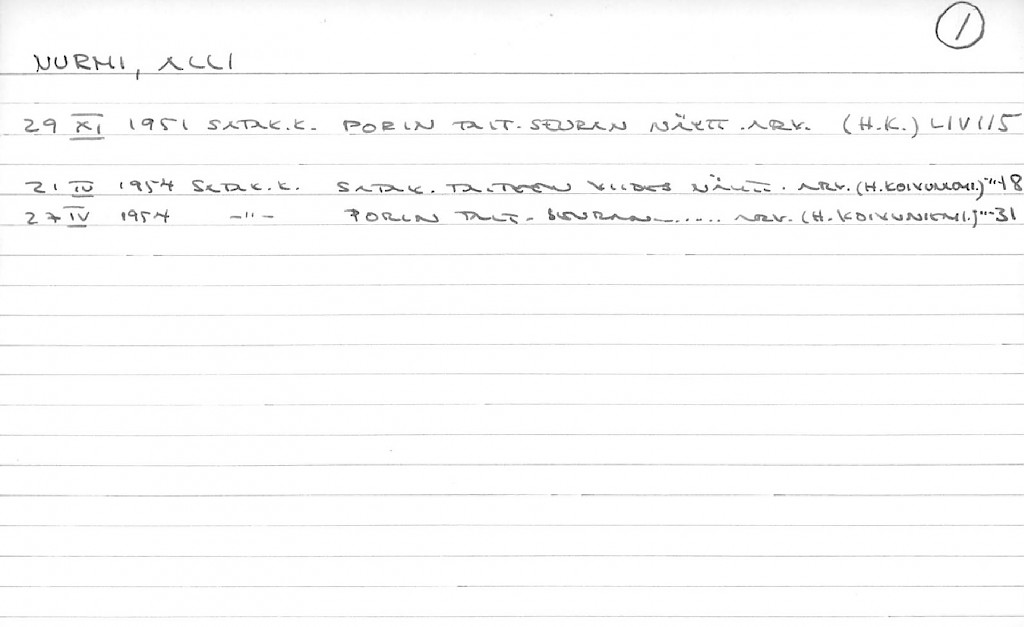 1
NURMI, ALLI
29 XI 1951 SATAK.K. PORIN TAIT. SEURAN NÄYTT. ARV. (H.K.) LIV 115
21 IV 1954 SATAK.K. SATAK. TAITEEN VIIDES NÄYTT. ARV. (H. KOIVUNIEMI.) -"-18
27 IV 1954 -"- PORIN TAIT. SEURAN ..... ARV. (H. KOIVUNIEMI.) -"-31